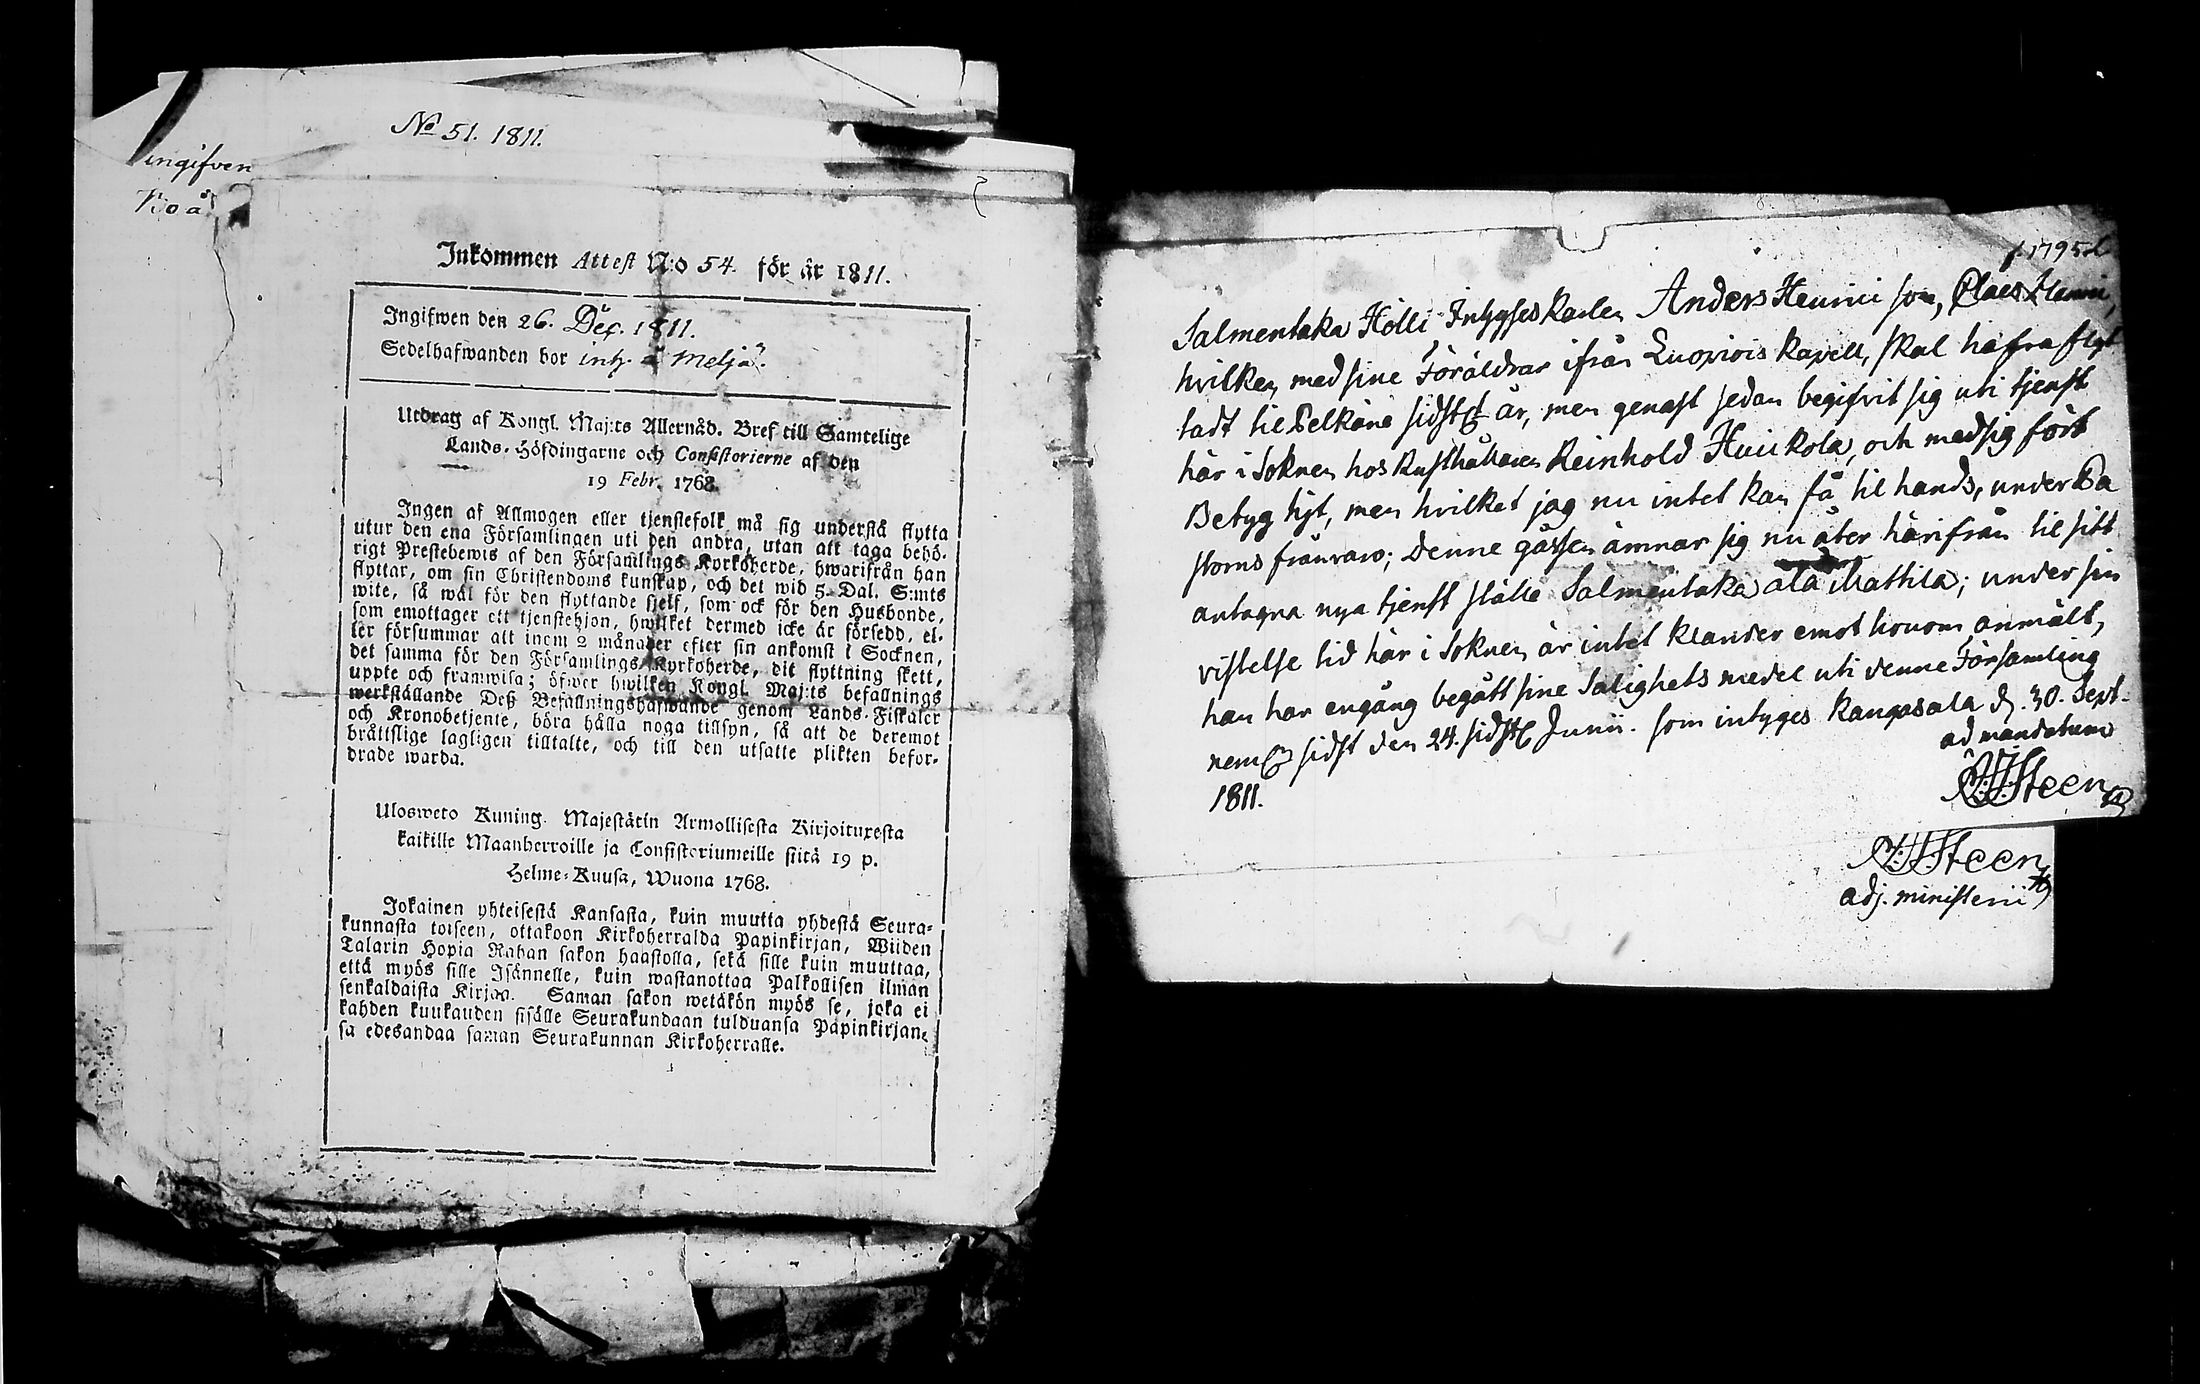 No 51. 1811.
ingifven
Inkommen Attest N:o 54. för år 1811.
Ingifwen den 26. Dec. 1811.
Sedelhafwanden bor inh. å Meljä.
Utdrag af Kongl. Maj:ts Allernåd. Bref till Samtelige
Lands-Höfdingarne och Consistorierne af den
19 Febr. 1768.
Ingen af Allmogen eller tjenstefolk må sig understå flytta
utur den ena Församlingen uti den andra, utan att taga behö-
rigt Prestebewis af den Församlings Kyrkoherde, hwarifrån han
flyttar, om sin Christendoms kunskap, och det wid 5. Dal. S:mts
wite, så wäl för den flyttande sjelf, som ock för den Husbonde,
som emottager ett tjenstehjon, hwilket dermed icke är försedd, el-
ler försummar att inom 2 månader efter sin ankomst i Socknen,
det samma för den Församlings Kyrkoherde, dit flyttning skett,
uppte och framwisa; öfwer hwilken Kongl. Maj:ts befallnings
werkställande Deß Befallningshafwande genom Lands-Fiskaler
och Kronobetjente, böra hålla noga tillsyn, så att de deremot
brättslige lagligen tilltalte, och till den utsatte plikten befor-
drade warda.
Ulosweto Kuning. Majestätin Armollisesta Kirjoituxesta
kaikille Maanherroille ja Consistoriumeille siitä 19 p.
Helme-Kuusa, Wuona 1768.
Jokainen yhteisestä Kansasta, kuin muutta yhdestä Seura-
kunnasta toiseen, ottakoon Kirkoherralda Papinkirjan, Wiiden
Talarin Hopia Rahan sakon haastolla, sekä sille kuin muuttaa,
että myös sille Isännelle, kuin wastanottaa Palkollisen ilman
senkaldaista Kirjaa. Saman sakon wetäkön myös se, joka ei
kahden kuukauden sisälle Seurakundaan tulduansa Papinkirjan-
sa edesandaa saman Seurakunnan Kirkoherralle.
f. 1795
Salmentaka Hölli Intygses karlen Anders Henrici son, Claes Henrici,
hvilken med sine Föräldrar ifrån Luopiois Kapell, skal hafva flyt
tadt til Pelkäne sidste år, men genast sedan begifvit sig uti tjenst
här i Soknen hos Rusthållaren Reinhold Huikola, och med sig fört
Betyg hit, men hvilket jag nu intet kan få til hands, under Pa
storns frånvaro; Denne gåssen ämnar sig nu åter härifrån til sitt
antagna nya tjenst ställe Salmentaka ala Mattila; under sin
vistelse tid här i Soknen är intet klander emot honom anmält,
han har engång begått sine Salighets medel uti denne Församling
nem sidst den 24. sidste Junii. som intyges Kangasala d. 30. Sept.
1811.
ad mandatum
Steen
Steen
adj. ministerii